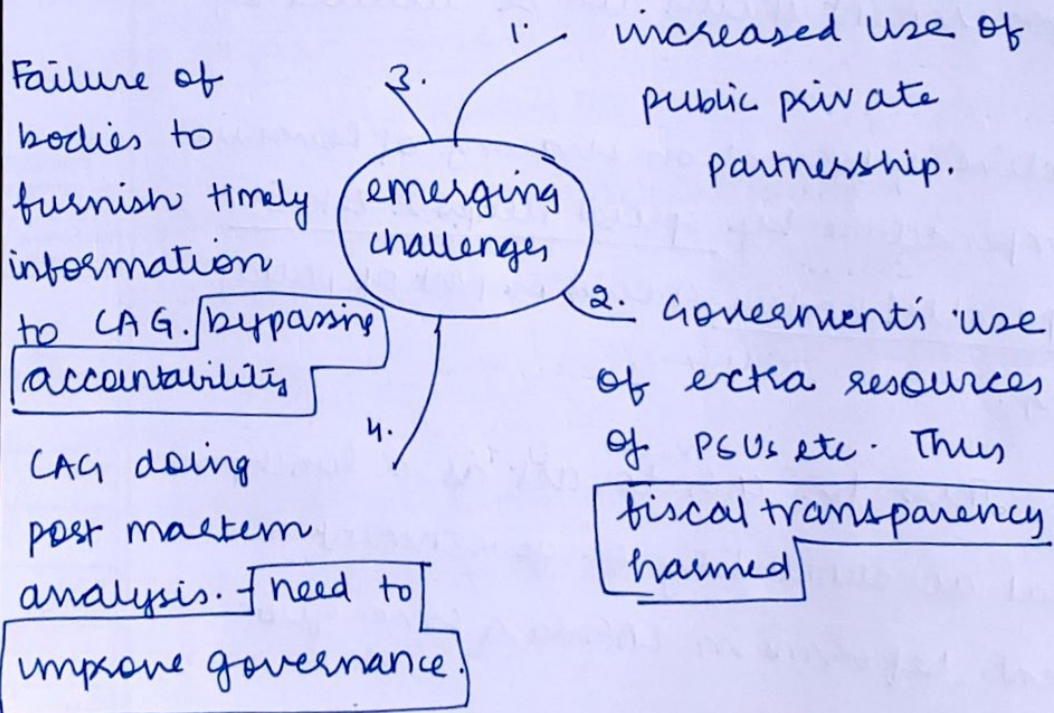 emerging
challenges
1. increased use of
public private
partnership.
2. Government's use
of extra resources
of PSUs etc. Thus
fiscal transparency
harmed
3.
Failure of
bodies to
furnish timely
information
to CAG. bypassing
accountability
4.
CAG doing
post mortem
analysis. - need to
improve governance.